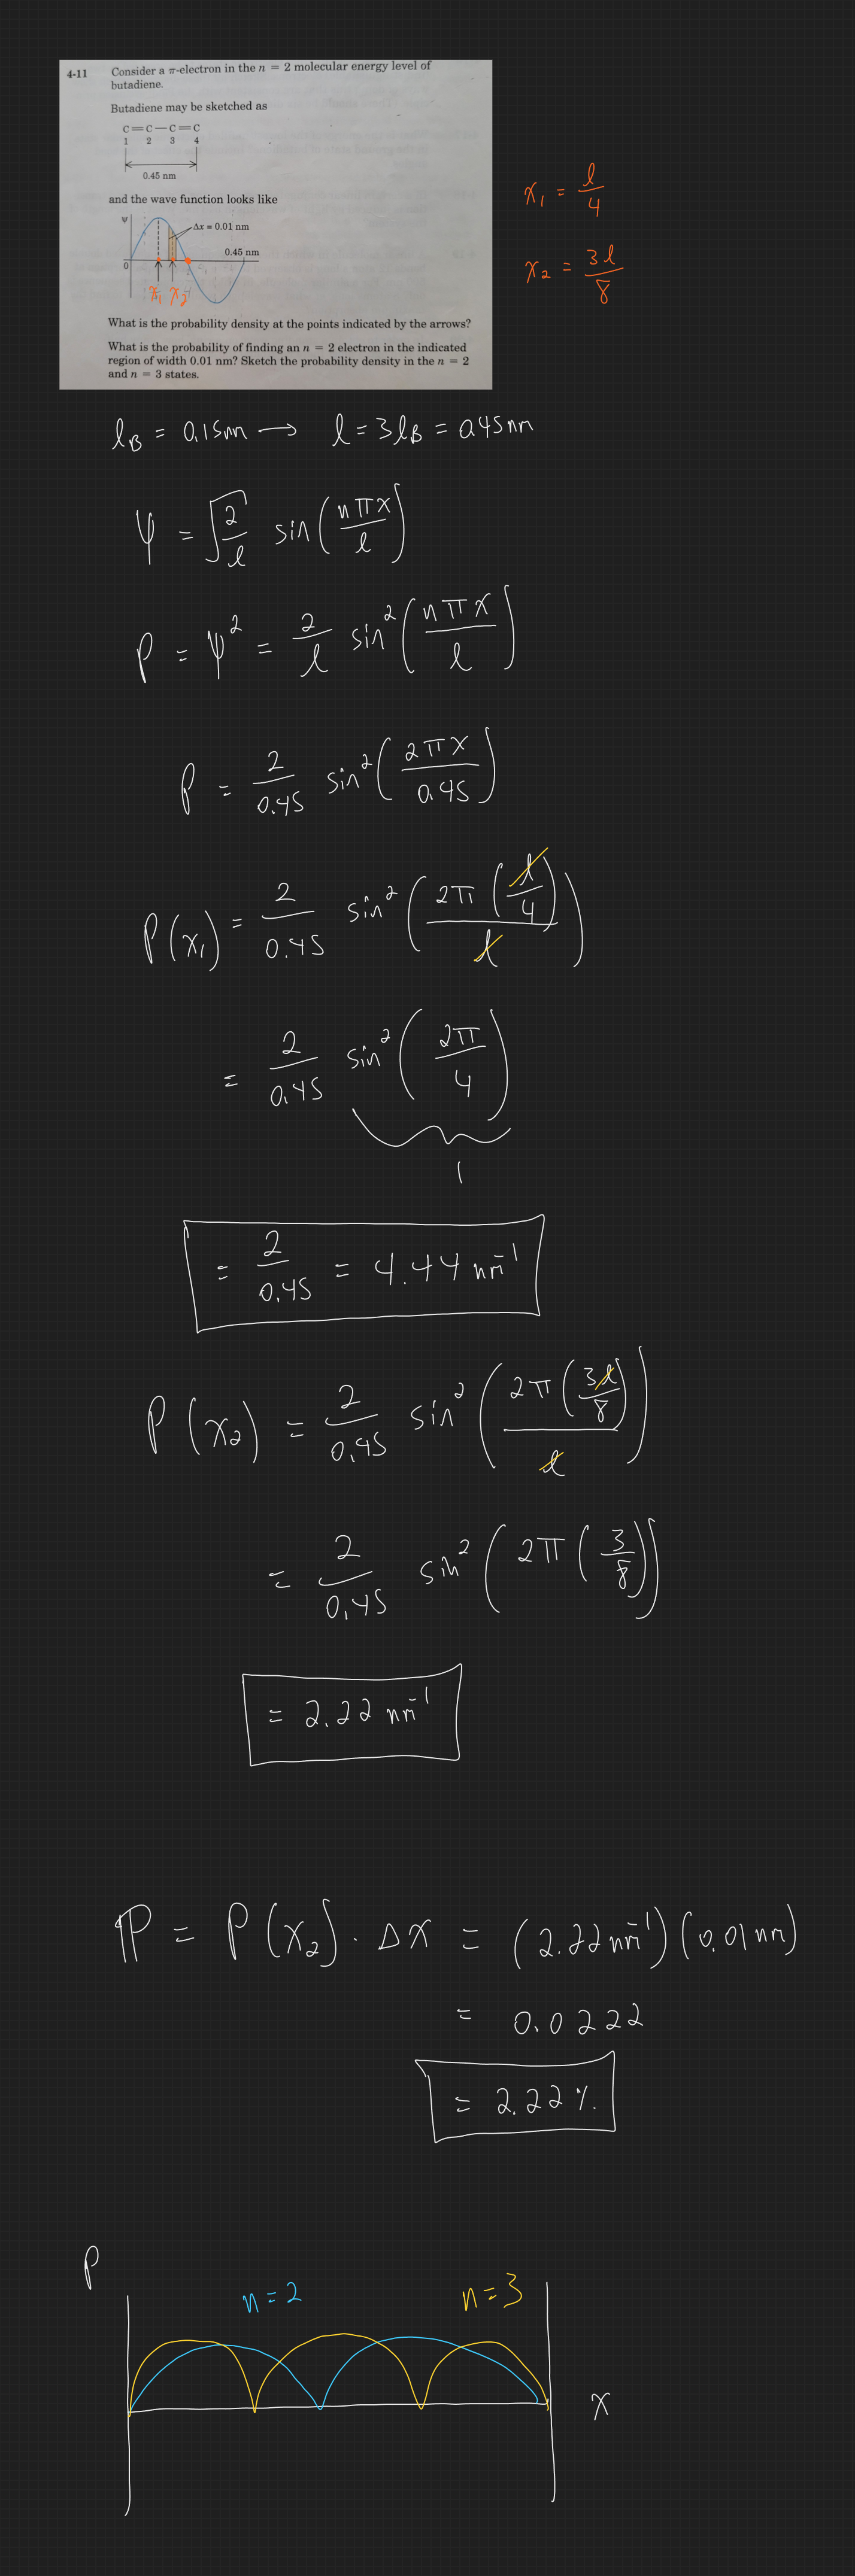 4-11 Consider a π-electron in the n = 2 molecular energy level of
butadiene.
Butadiene may be sketched as
C=C—C=C
1 2 3 4
0.45 nm
and the wave function looks like
ψ
Δx = 0.01 nm
0.45 nm
0
x₁ x₂
What is the probability density at the points indicated by the arrows?
What is the probability of finding an n = 2 electron in the indicated
region of width 0.01 nm? Sketch the probability density in the n = 2
and n = 3 states.
x₁ = l/4
x₂ = 3l/8
l_B = 0.15nm → l = 3l_B = 0.45nm
ψ = √(2/l) sin(nπx/l)
P = ψ² = 2/l sin²(nπx/l)
P = 2/0.45 sin²(2πx/0.45)
P(x₁) = 2/0.45 sin²(2π(l/4)/l)
= 2/0.45 sin²(2π/4)
1
= 2/0.45 = 4.44 nm⁻¹
P(x₂) = 2/0.45 sin²(2π(3l/8)/l)
= 2/0.45 sin²(2π(3/8))
= 2.22 nm⁻¹
ℙ = P(x₂) · Δx = (2.22 nm⁻¹)(0.01 nm)
= 0.0222
= 2.22 %.
P
n=2 n=3
x